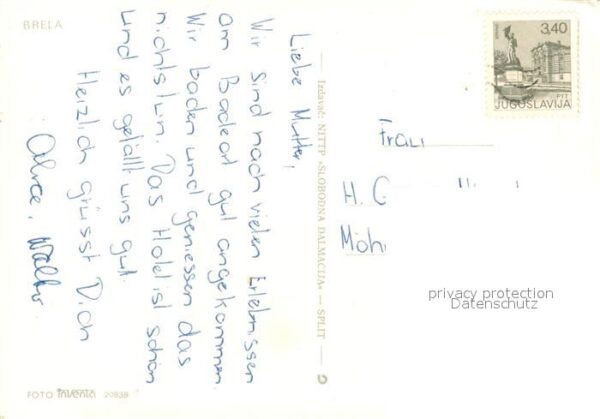 BRELA
Liebe Mutter,
Wir sind nach vielen Erlebnissen
am Badeort gut angekommen.
Wir baden und geniessen das
nichtstun. Das Hotel ist schön
und es gefällt uns gut.
Herzlich grüsst Dich
Walter
Izdavač: NITTP »SLOBODNA DALMACIJA« — SPLIT —
3,40
PTT
JUGOSLAVIJA
Frau
H. G
Möh
privacy protection
Datenschutz
FOTO 20838